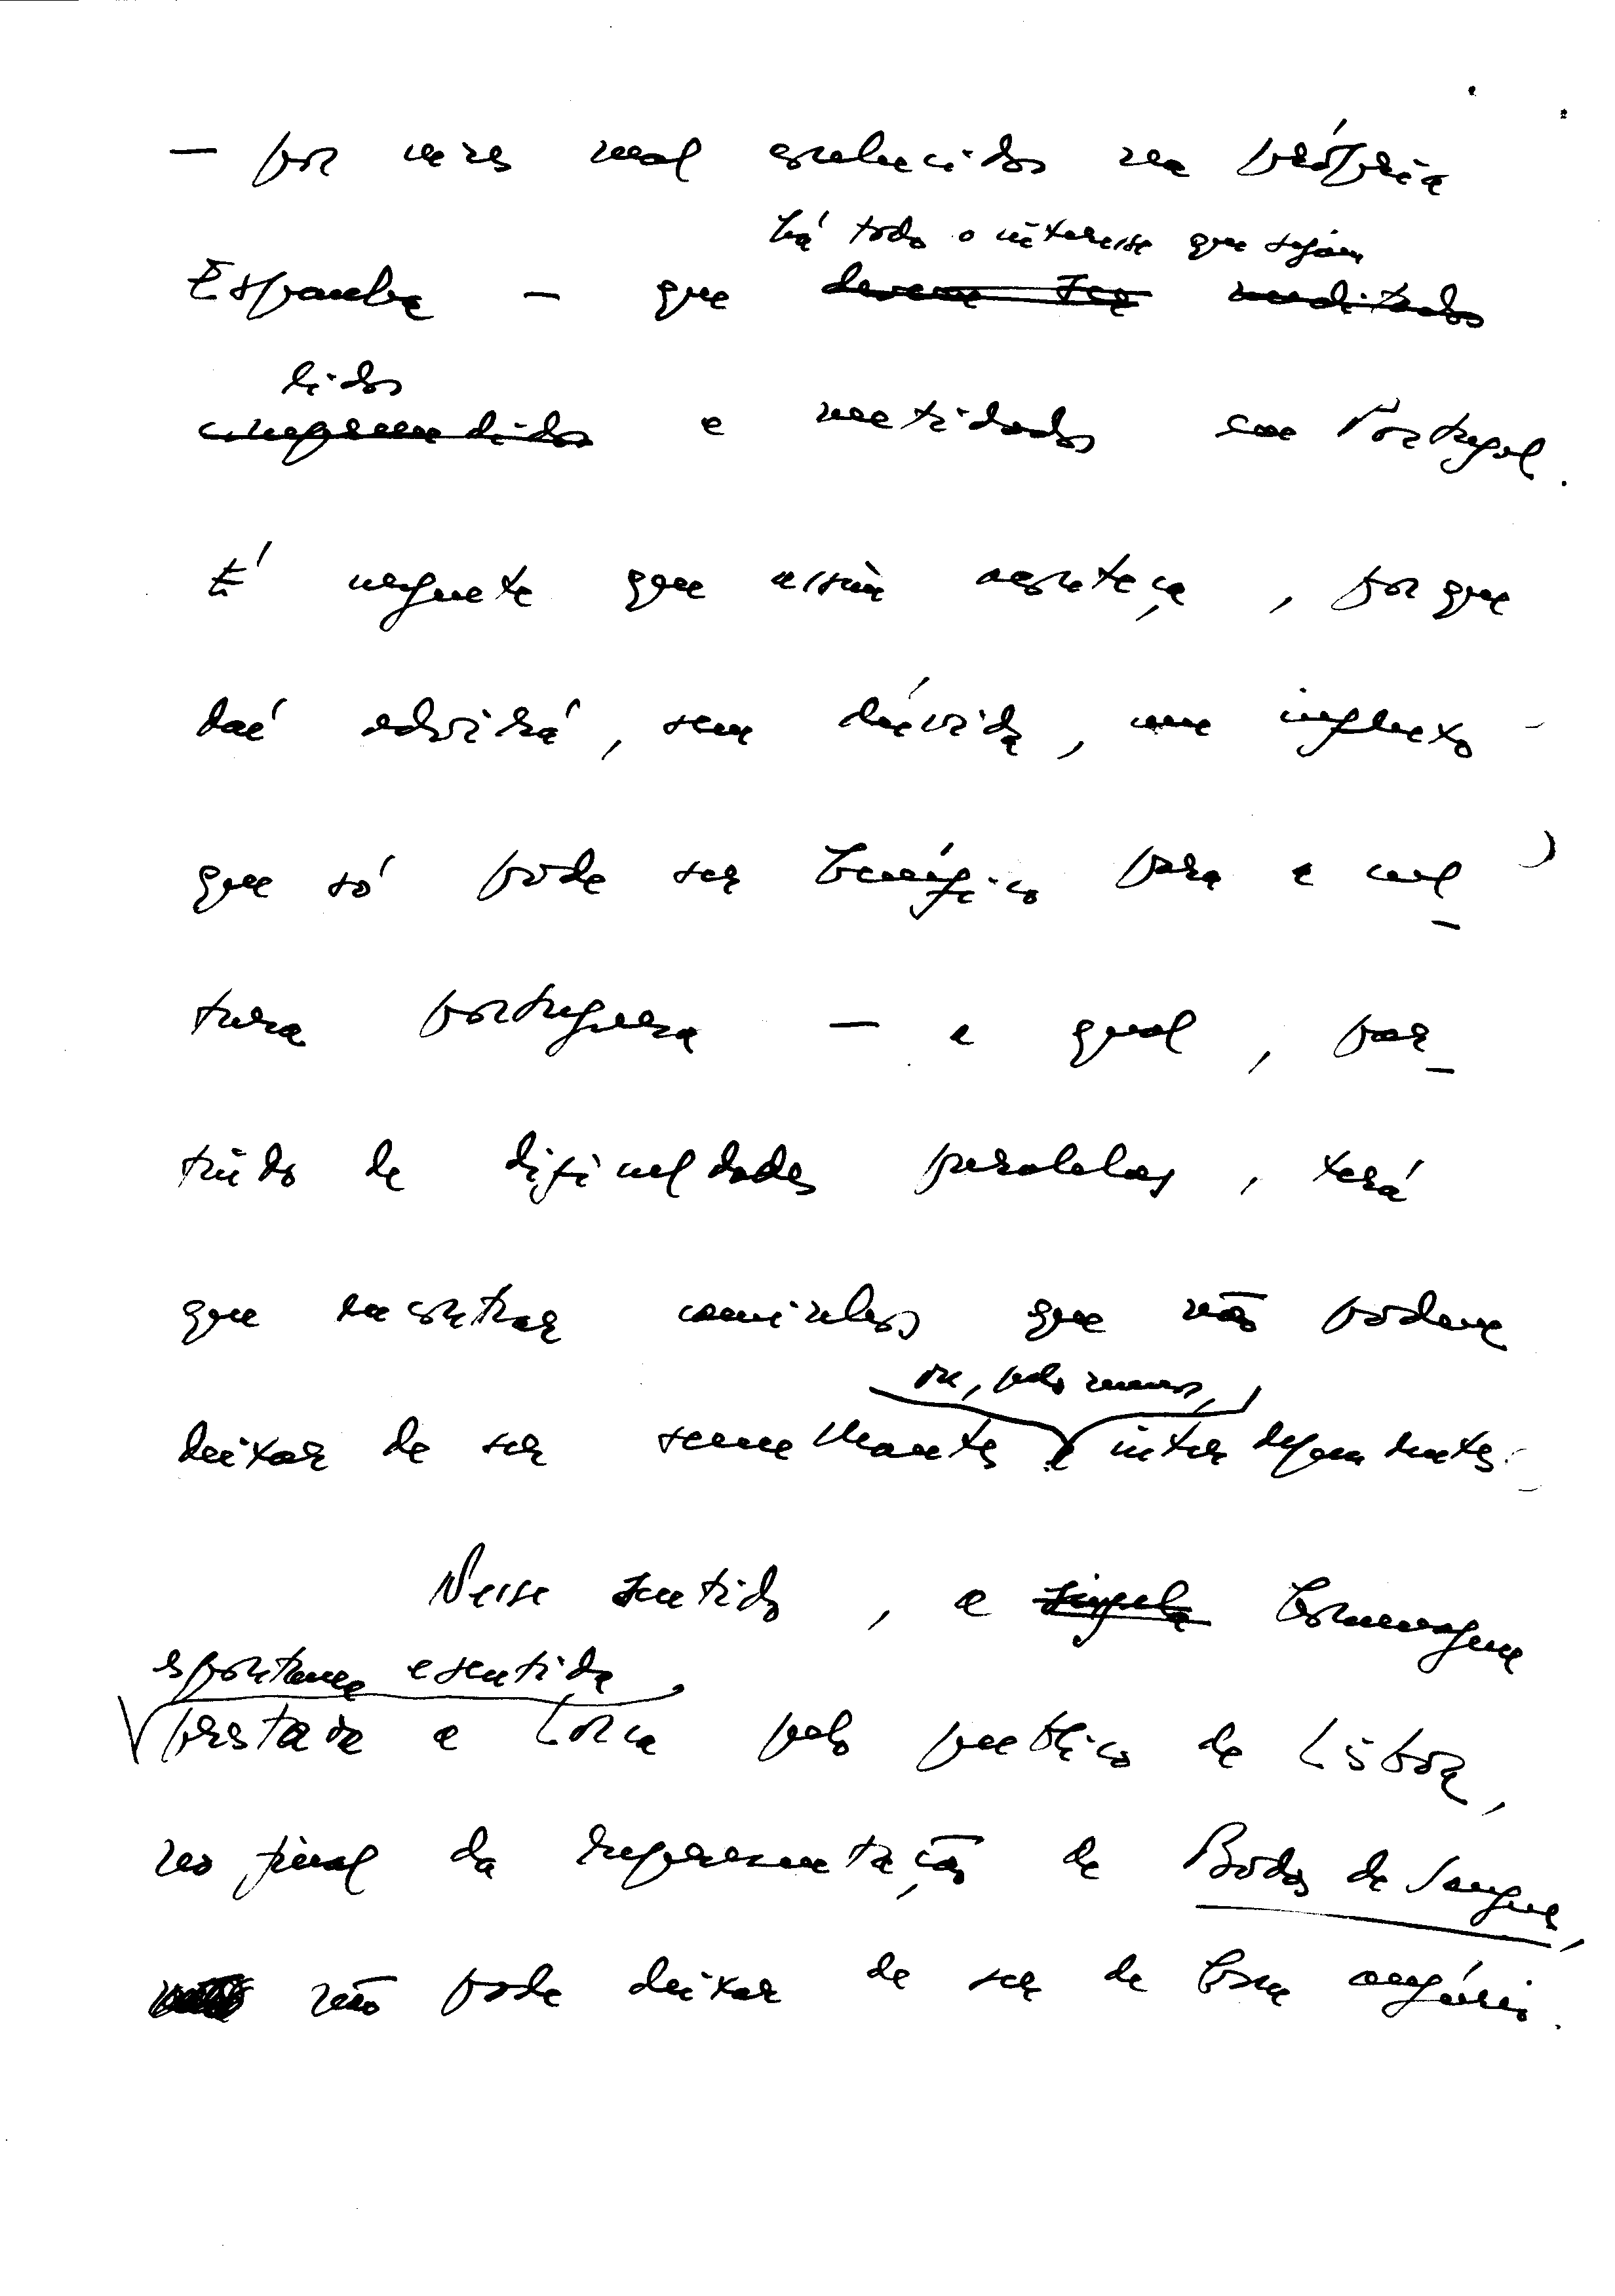 — por vezes mal esclarecidos na própria
há todo o interesse que sejam
Espanha — que devem ser meditados
lidos
compreendidos e meditados em Portugal.
É urgente que assim aconteça, porque
daí advirá, sem dúvida, um influxo
que só pode ser benéfico para a cul-
tura portuguesa — a qual, par-
tindo de dificuldades paralelas, terá
que encontrar caminhos que não podem
ou, pelo menos,
deixar de ser semelhantes e interdependentes.
Nesse sentido, a singela homenagem
espontânea e sentida
prestada a Lorca pelo público de Lisboa,
no final da representação de Bodas de Sangue,
não pode deixar de ser de bom augúrio.